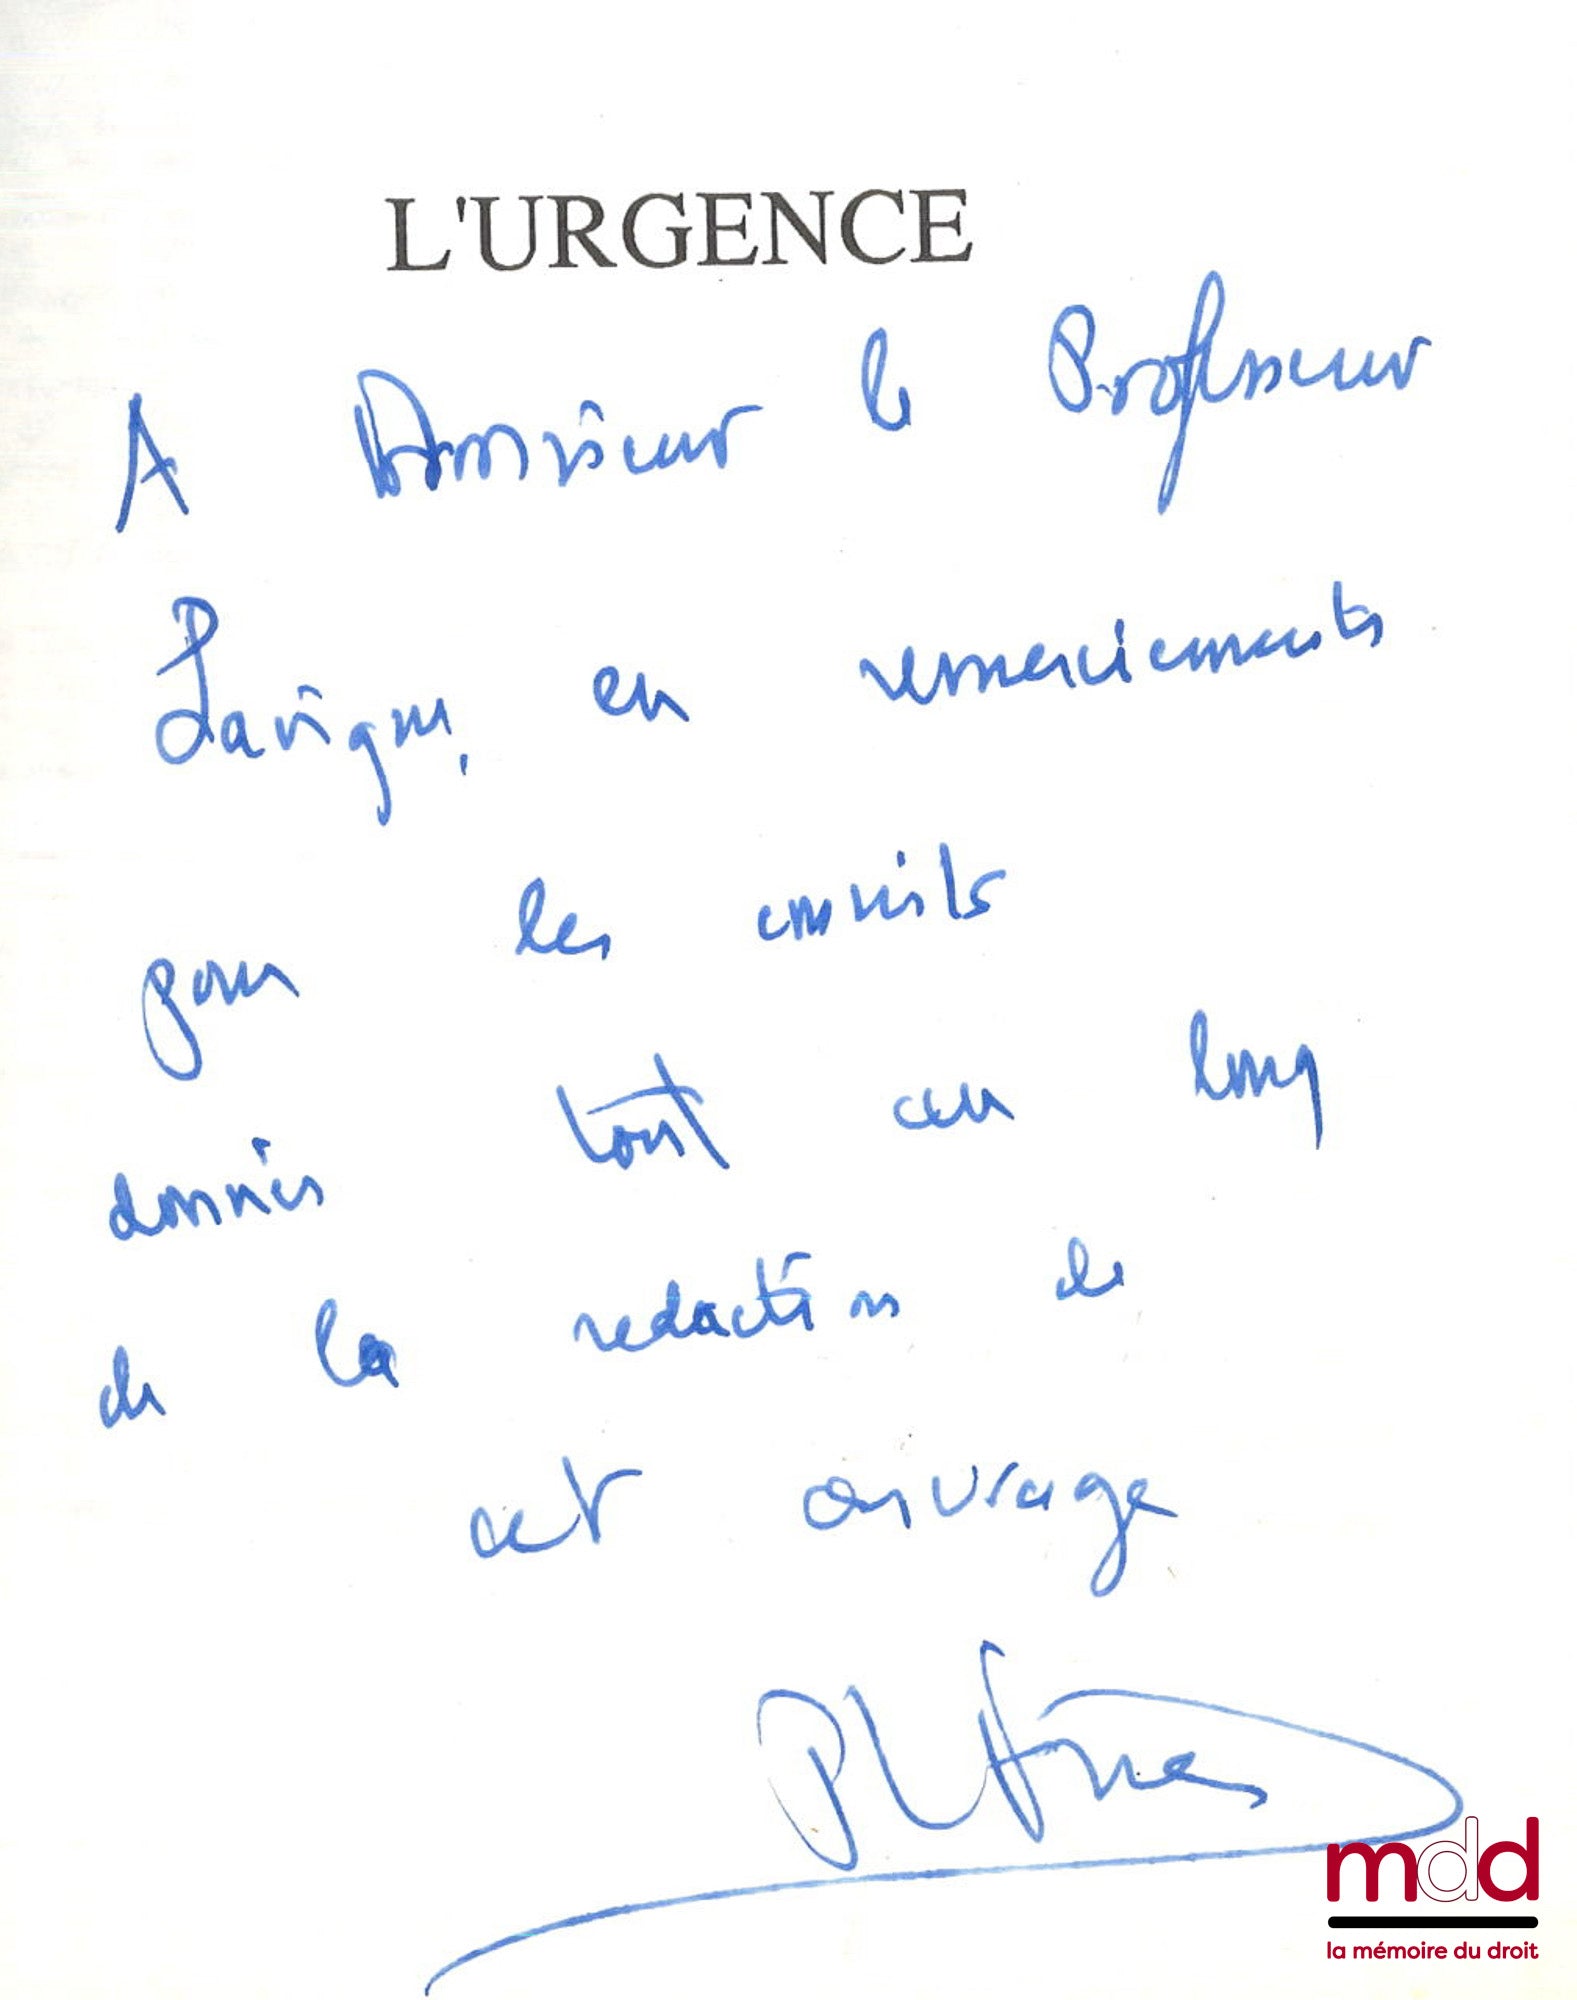 L'URGENCE
A Monsieur le Professeur
Lavigne, en remerciements
pour les conseils
donnés tout au long
de la rédaction de
cet ouvrage
mdd
la mémoire du droit